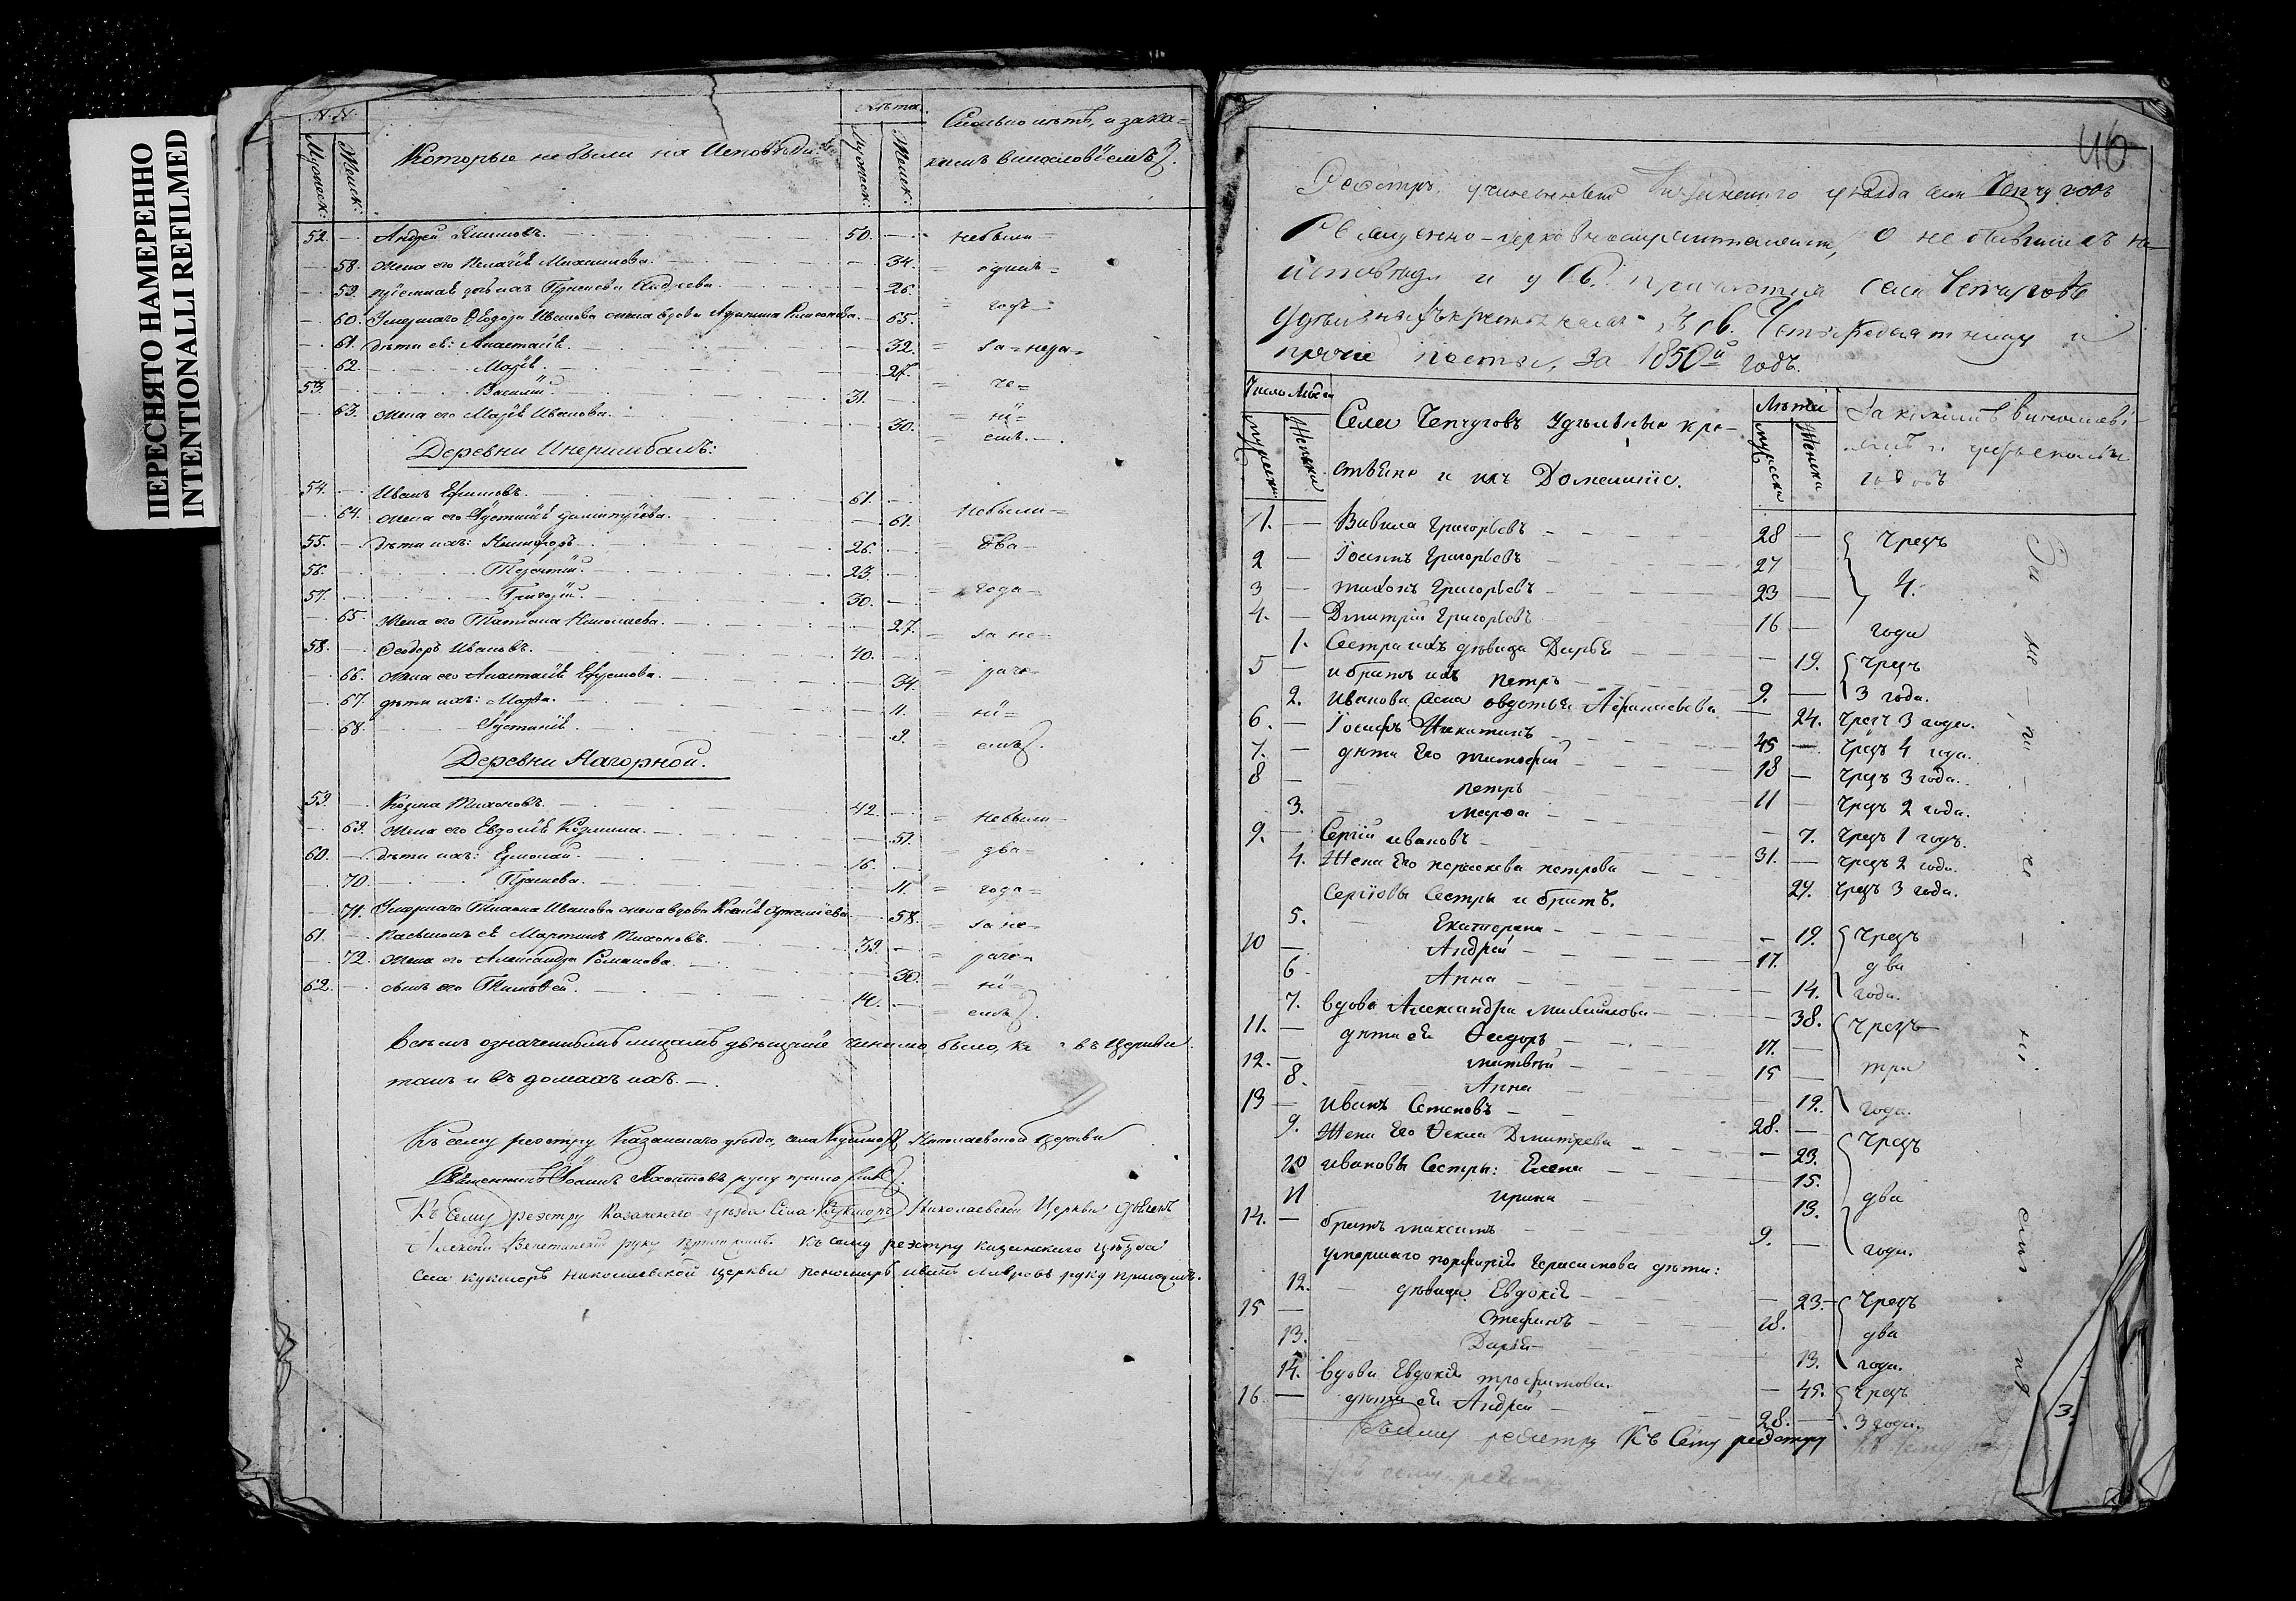 ПЕРЕСНЯТО НАМЕРЕННО
INTENTIONALLI REFILMED
N.N.
Лѣта.
Мужеск: Женск:
Которые небыли на Исповѣди:
Мужеск: Женск:
Сколько лѣтъ, и за ка=
кимъ винословіемъ.
52. — Андрей 50. — небыли=
— 58. жена его Пелагія — 34. = одинъ=
— 59. Андреева. — 26.
— 60. Умершаго Ѳеодора Иванова жена вдова — 65. = годъ=
— 61. дѣти ея: Анастасія. — 32. = за=нера=
— 62. Марія. — 27. = че=
53. Василій. 31. —
— 63. жена его Марія Иванова. — 30. = ні=
= емъ.
Деревни
54. — Иванъ Ефимовъ. 61. —
— 64. жена его Іустинія — 61. небыли=
55. — дѣти ихъ: Никифоръ. 26. — = два=
56. Терентій. 23. —
57. Григорій. 30. — = года=
— 65. жена его Татіана Николаева. — 27. = за не=
58. — Ѳеодоръ Ивановъ. 40. —
— 66. жена его Анастасія — 34. = раче=
— 67. дѣти ихъ: Марѳа. — 11. = ні=
— 68. Іустинія — 9. = емъ.
Деревни Нагорной.
59. — Козма Тихоновъ. 42. — = небыли=
— 69. жена его Евдокія Козмина. — 51. = два=
60. — дѣти ихъ: Ермолай. 16. —
— 70. — 11. = года=
— 71. Умершаго Тихона Иванова жена вдова — 58. = за не=
61. — Пасынокъ ея Мартинъ Тихоновъ. 39. — = раче=
— 72. жена его Александра Романова. — 30. = ні=
62. — сынъ его Тимоѳей. 14. — = емъ.
Всѣмъ означеннымъ лицамъ увѣщаніе чинимо было, ка въ Церкви
такъ и въ домахъ ихъ. —
Къ сему реэстру Казанскаго уѣзда, села Николаевской Церкви
Священникъ Іоаннъ руку приложилъ.
Къ сему реэстру Казанскаго уѣзда Села Кукморъ Николаевской Церкви
Алексей руку приложилъ. Къ сему реэстру казанскаго уѣзда
села кукморъ николаевской церкви пономарь иванъ руку приложилъ.
46
Реэстръ, учиненный Казанскаго уѣзда села Чепчуговъ
Священно-церковнослужителями, о небывшихъ на
исповѣди и у Св. причастія села Чепчуговъ
въ св. Четыредесятницу и
прочіе посты, за 1850й годъ.
Число Людей
мужеска Женска
Села Чепчуговъ Удѣльные кре-
стьяне и ихъ Домашніе.
Лѣта
мужеска Женска
За какимъ винослові-
емъ и
годовъ
1. — Вавила Григорьевъ 28 — Чрезъ
2 — Іосипъ Григорьевъ 27
3 — тихонъ Григорьевъ 23 — 4.
4. — Дмитрій Григорьевъ 16 — года
1. Сестра ихъ дѣвица Дарья — 19. Чрезъ
5 — и братъ ихъ петръ 9. — 3 года.
2. Иванова жена овдотья Афанасьева — 24. Чрезъ 3 года.
6. — Іосифъ Никитинъ 45 — Чрезъ 4 года.
7. — дѣти Его тимофей 18 — Чрезъ 3 года.
8 — петръ 11 — Чрезъ 2 года.
3. марѳа — 7. Чрезъ 1 годъ.
9. — Сергій ивановъ 31. — Чрезъ 2 года.
4. Жена Его параскева петрова 27. Чрезъ 3 года.
Сергіовы Сестры и братъ.
5. Екатерина — 19. Чрезъ
10 — Андрей 17. два
6 Анна — 14. года.
7. вдова Александра — 38. Чрезъ
11. — дѣти ея Ѳедоръ 17. —
12. — матвѣй 15 — три
8. Анна — 19. года.
13 — иванъ Семеновъ 28. —
9. Жена Его Ѳекла Дмитрева — 23. Чрезъ
10 ивановы Сестры: Елена 15.
11 ирина 13. два
14. — братъ максимъ 9. — года.
умершаго порфирія Герасимова дѣти:
12. дѣвица Евдокія — 23. Чрезъ
15 — Стефанъ 18. два
13. Дарья 13. года.
14. вдова Евдокія трофимова. — 45. Чрезъ
16 — дѣти ея Андрей 28. — 3 года.
За не — ра — че — ні — емъ
реэстру Къ Сему реэстру
Къ сему реэстру
3.